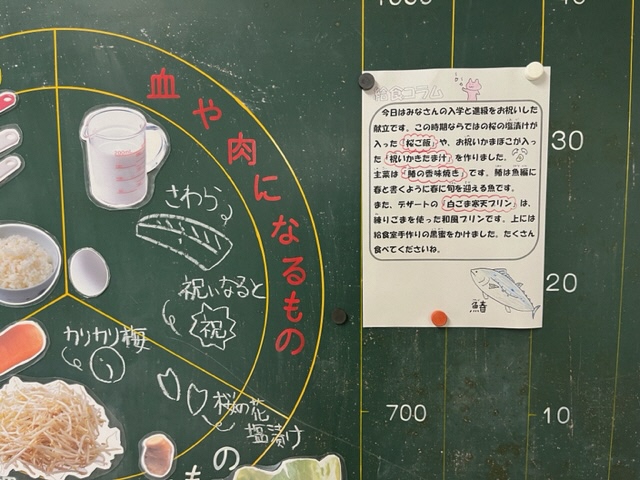 血や肉になるもの
さわら
祝いなると
祝
カリカリ梅
桜の花
塩漬け
の
も
給食コラム
今日はみなさんの入学と進級をお祝いした
献立です。この時期ならではの桜の塩漬けが
入った「桜ご飯」や、お祝いかまぼこが入っ
た「祝いかきたま汁」を作りました。
主菜は「鰆の香味焼き」です。鰆は魚編に
春と書くように春に旬を迎える魚です。
また、デザートの「白ごま寒天プリン」は、
練りごまを使った和風プリンです。上には
給食室手作りの黒蜜をかけました。たくさん
食べてくださいね。
鰆
30
20
700
10